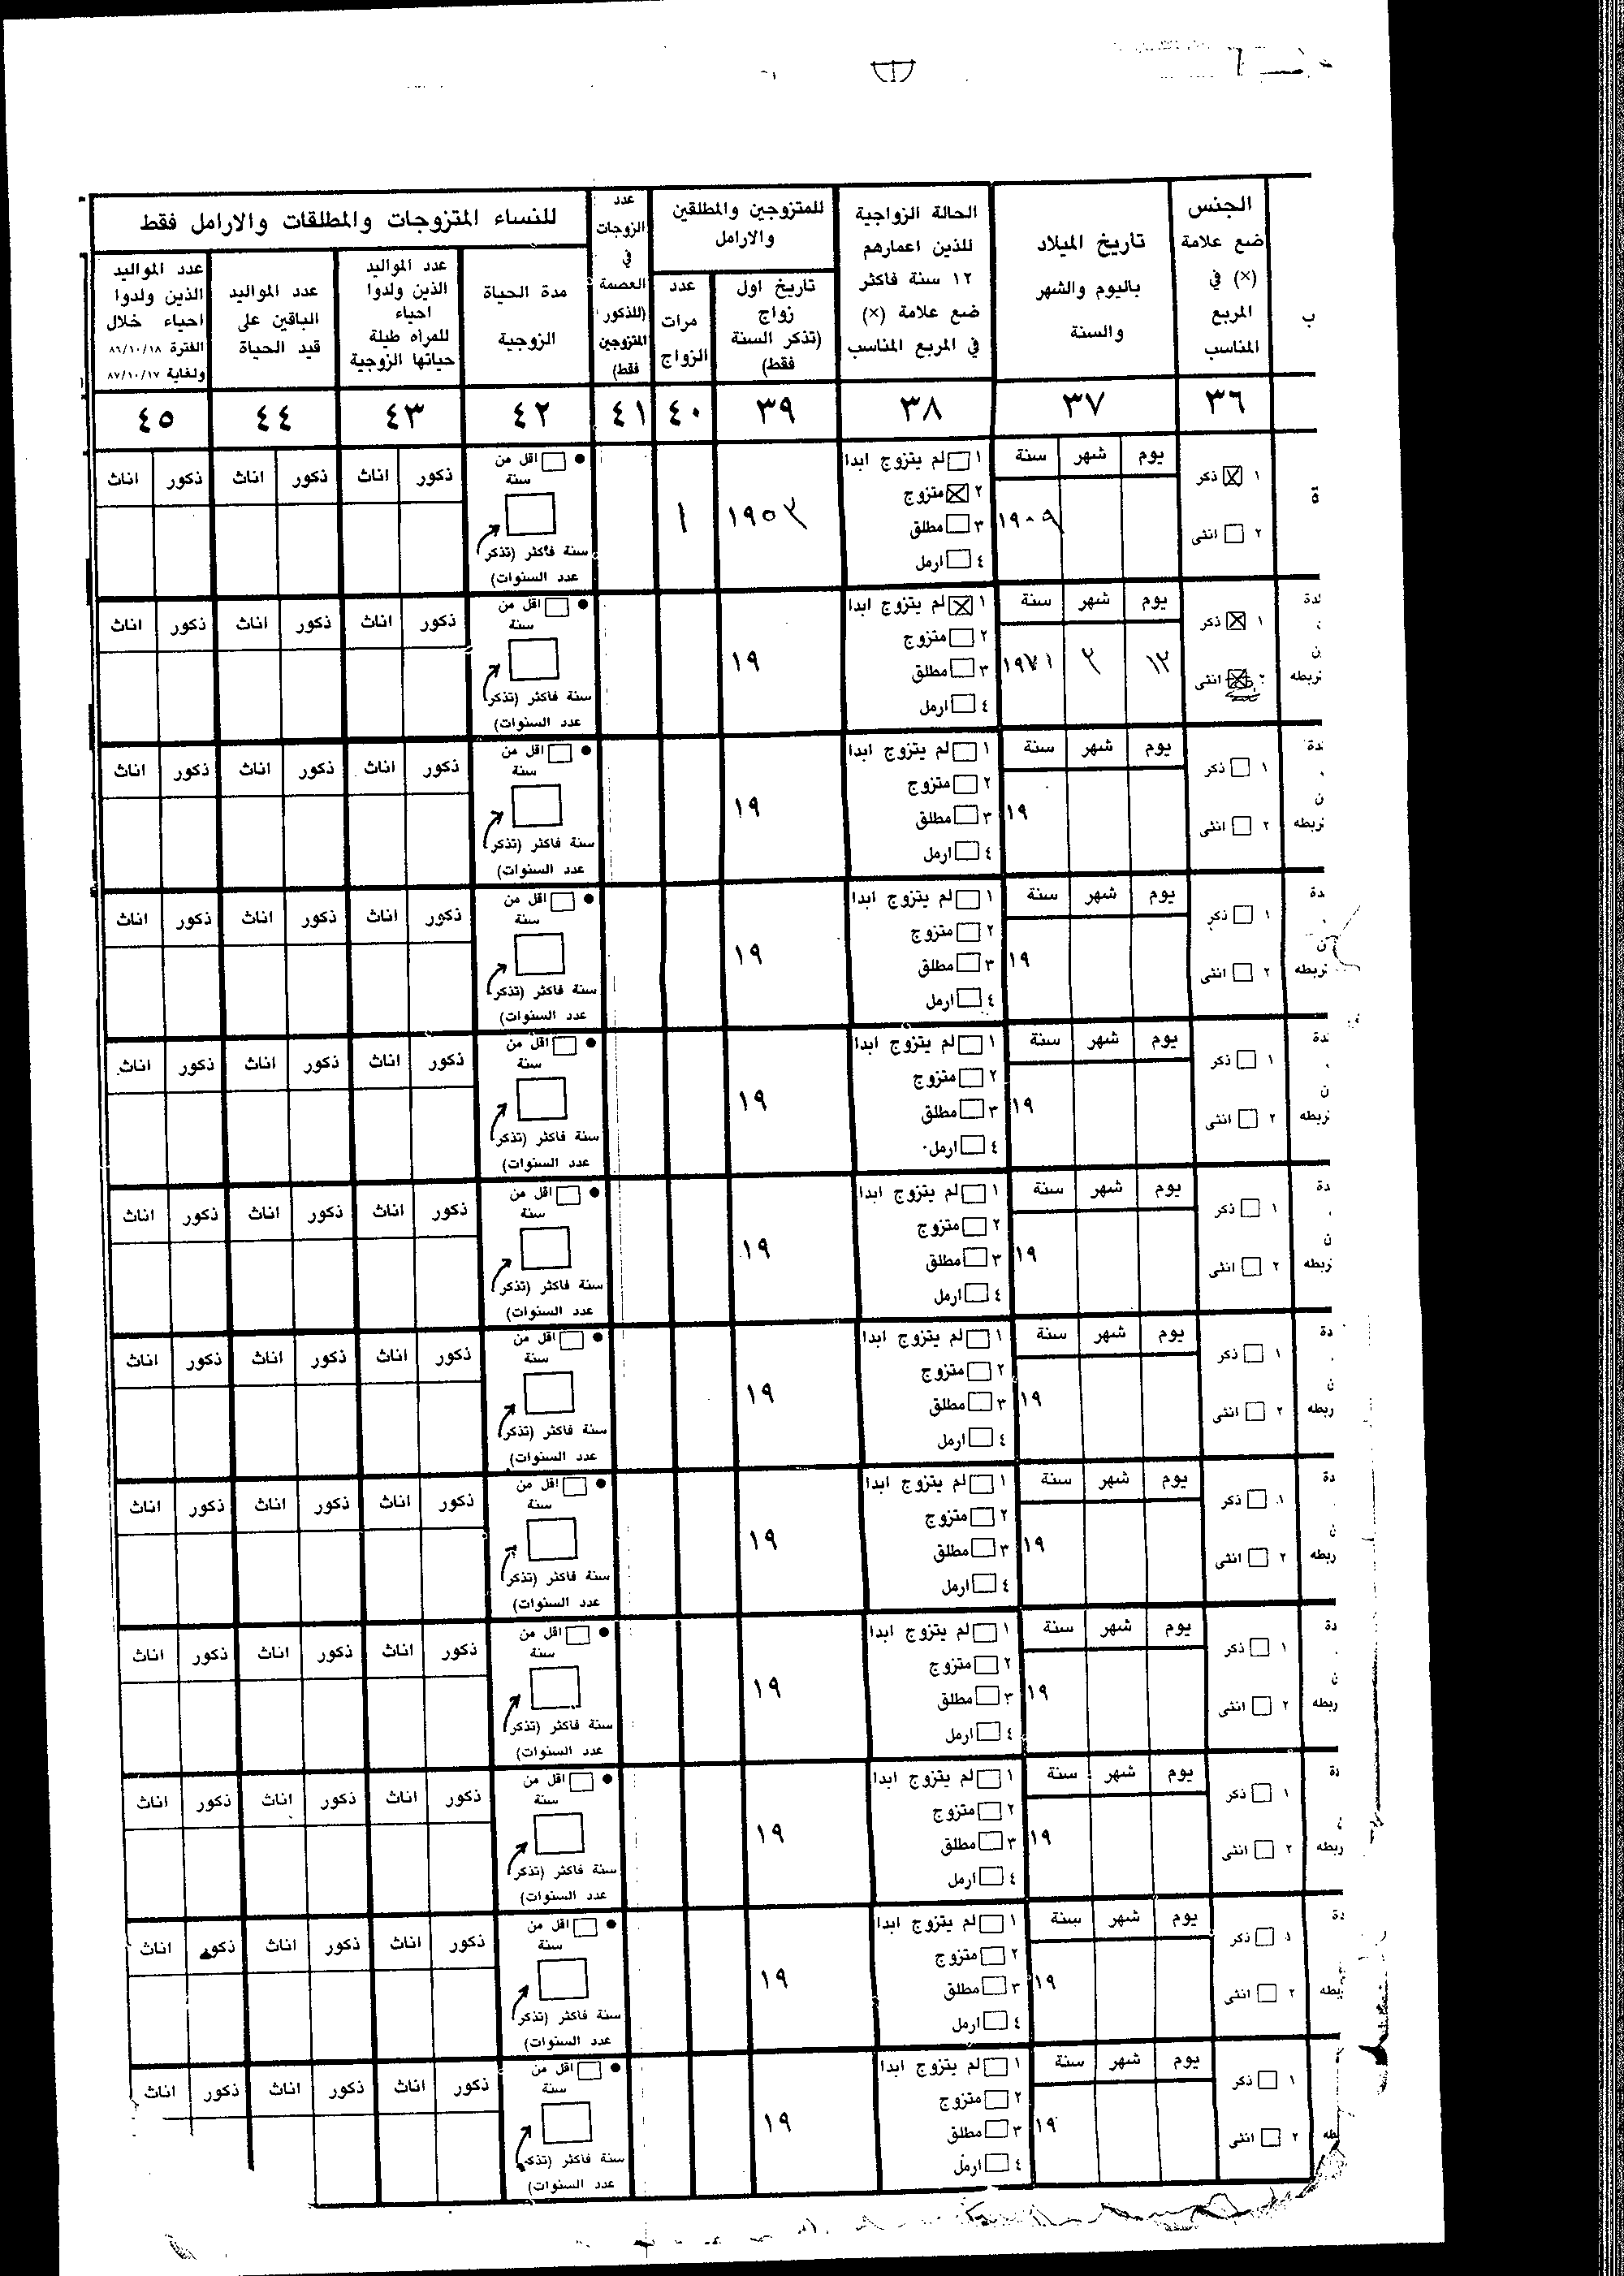 الجنس
ضع علامة
(×) في
المربع
المناسب
تاريخ الميلاد
باليوم والشهر
والسنة
الحالة الزواجية
للذين اعمارهم
١٢ سنة فاكثر
ضع علامة (×)
في المربع المناسب
للمتزوجين والمطلقين
والارامل
تاريخ اول
زواج
(تذكر السنة
فقط)
عدد
مرات
الزواج
عدد
الزوجات
في
العصمة
(للذكور
المتزوجين
فقط)
للنساء المتزوجات والمطلقات والارامل فقط
مدة الحياة
الزوجية
عدد المواليد
الذين ولدوا
احياء
للمرأه طيلة
حياتها الزوجية
عدد المواليد
الباقين على
قيد الحياة
عدد المواليد
الذين ولدوا
احياء خلال
الفترة ٨٦/١٠/١٨
ولغاية ٨٧/١٠/١٧
٣٦ ٣٧ ٣٨ ٣٩ ٤٠ ٤١ ٤٢ ٤٣ ٤٤ ٤٥
١ ذكر
٢ انثى
يوم شهر سنة
١٩٠٩
١ لم يتزوج ابدا
٢ متزوج
٣ مطلق
٤ ارمل
١٩٥٣
١
اقل من
سنة
سنة فاكثر (تذكر
عدد السنوات)
ذكور اناث ذكور اناث ذكور اناث
لدة
ن
تربطه
١ ذكر
٢ انثى
يوم شهر سنة
١٢ ٢ ١٩٧١
١ لم يتزوج ابدا
٢ متزوج
٣ مطلق
٤ ارمل
١٩
اقل من
سنة
سنة فاكثر (تذكر
عدد السنوات)
ذكور اناث ذكور اناث ذكور اناث
دة
ن
تربطه
١ ذكر
٢ انثى
يوم شهر سنة
١٩
١ لم يتزوج ابدا
٢ متزوج
٣ مطلق
٤ ارمل
١٩
اقل من
سنة
سنة فاكثر (تذكر
عدد السنوات)
ذكور اناث ذكور اناث ذكور اناث
دة
ن
تربطه
١ ذكر
٢ انثى
يوم شهر سنة
١٩
١ لم يتزوج ابدا
٢ متزوج
٣ مطلق
٤ ارمل
١٩
اقل من
سنة
سنة فاكثر (تذكر
عدد السنوات)
ذكور اناث ذكور اناث ذكور اناث
دة
ن
تربطه
١ ذكر
٢ انثى
يوم شهر سنة
١٩
١ لم يتزوج ابدا
٢ متزوج
٣ مطلق
٤ ارمل
١٩
اقل من
سنة
سنة فاكثر (تذكر
عدد السنوات)
ذكور اناث ذكور اناث ذكور اناث
دة
ن
تربطه
١ ذكر
٢ انثى
يوم شهر سنة
١٩
١ لم يتزوج ابدا
٢ متزوج
٣ مطلق
٤ ارمل
١٩
اقل من
سنة
سنة فاكثر (تذكر
عدد السنوات)
ذكور اناث ذكور اناث ذكور اناث
دة
ن
ربطه
١ ذكر
٢ انثى
يوم شهر سنة
١٩
١ لم يتزوج ابدا
٢ متزوج
٣ مطلق
٤ ارمل
١٩
اقل من
سنة
سنة فاكثر (تذكر
عدد السنوات)
ذكور اناث ذكور اناث ذكور اناث
دة
ن
ربطه
١ ذكر
٢ انثى
يوم شهر سنة
١٩
١ لم يتزوج ابدا
٢ متزوج
٣ مطلق
٤ ارمل
١٩
اقل من
سنة
سنة فاكثر (تذكر
عدد السنوات)
ذكور اناث ذكور اناث ذكور اناث
دة
ن
ربطه
١ ذكر
٢ انثى
يوم شهر سنة
١٩
١ لم يتزوج ابدا
٢ متزوج
٣ مطلق
٤ ارمل
١٩
اقل من
سنة
سنة فاكثر (تذكر
عدد السنوات)
ذكور اناث ذكور اناث ذكور اناث
دة
ربطه
١ ذكر
٢ انثى
يوم شهر سنة
١٩
١ لم يتزوج ابدا
٢ متزوج
٣ مطلق
٤ ارمل
١٩
اقل من
سنة
سنة فاكثر (تذكر
عدد السنوات)
ذكور اناث ذكور اناث ذكور اناث
دة
بطه
١ ذكر
٢ انثى
يوم شهر سنة
١٩
١ لم يتزوج ابدا
٢ متزوج
٣ مطلق
٤ ارمل
١٩
اقل من
سنة
سنة فاكثر (تذكر
عدد السنوات)
ذكور اناث ذكور اناث ذكور اناث
طه
١ ذكر
٢ انثى
يوم شهر سنة
١٩
١ لم يتزوج ابدا
٢ متزوج
٣ مطلق
٤ ارمل
١٩
اقل من
سنة
سنة فاكثر (تذكر
عدد السنوات)
ذكور اناث ذكور اناث ذكور اناث